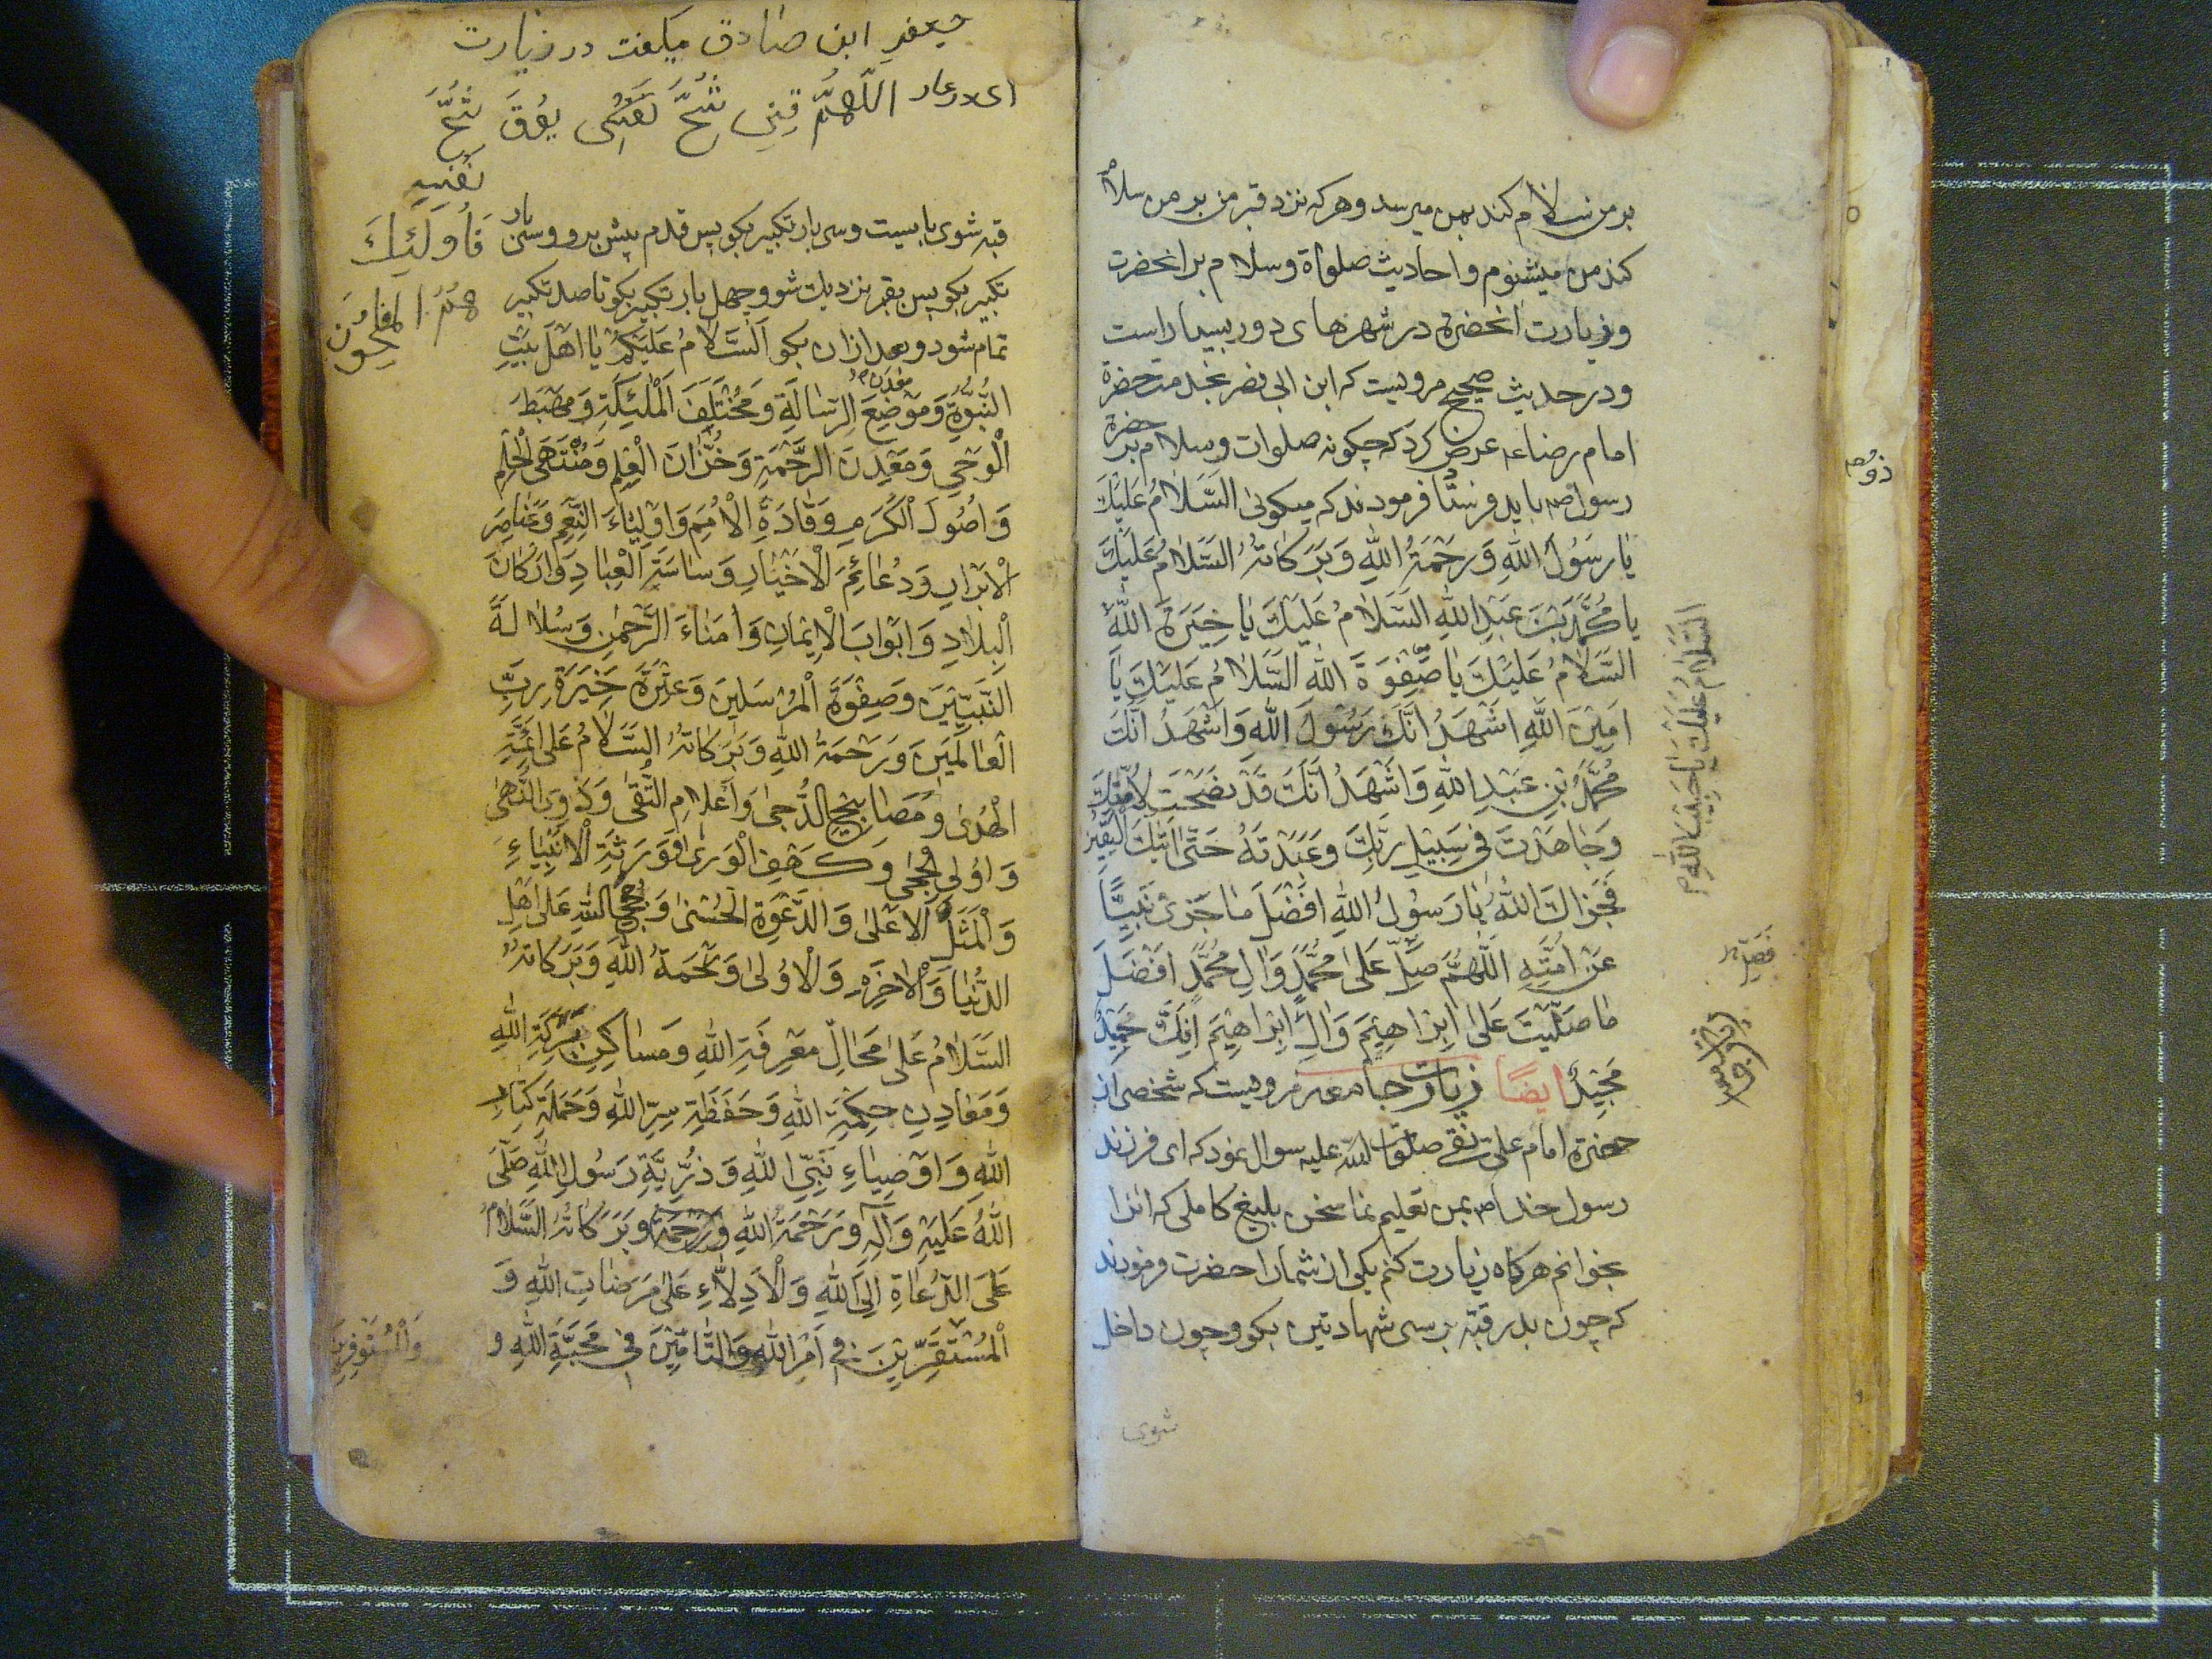 بر من سلام کند بمن میرسد وهرکه نزد قبر من بر من سلام
کند من میشنوم و احادیث صلواة وسلام بر انحضرت
وزیارت انحضرة در شهرهای دور بسیار است
ودر حدیث صحیح مرویست که ابن ابی نصر بخدمت حضرة
امام رضاء عرض کرد که چکونه صلوات وسلام بر حضرة
رسول ص باید فرستاد فرمودند که میکوئی السَّلَامُ عَلَيْكَ
يَا رَسُولَ اللهِ وَرَحْمَةُ اللهِ وَبَرَكَاتُهُ السَّلَامُ عَلَيْكَ
يَا مُحَمَّدَ بْنَ عَبْدِ اللهِ السَّلَامُ عَلَيْكَ يَا خِيَرَةَ اللهِ
السَّلَامُ عَلَيْكَ يَا حَبِيبَ اللهِ
السَّلَامُ عَلَيْكَ يَا صِفْوَةَ اللهِ السَّلَامُ عَلَيْكَ يَا
اَمِينَ اللهِ اَشْهَدُ اَنَّكَ رَسُولُ اللهِ وَاَشْهَدُ اَنَّكَ
مُحَمَّدُ بْنُ عَبْدِ اللهِ وَاَشْهَدُ اَنَّكَ قَدْ نَصَحْتَ لِاُمَّتِكَ
وَجَاهَدْتَ فِي سَبِيلِ رَبِّكَ وَعَبَدْتَهُ حَتَّى اَتٰيكَ الْيَقِينُ
فَجَزَاكَ اللهُ يَا رَسُولَ اللهِ اَفْضَلَ مَا جَزَى نَبِيًّا
عَنْ اُمَّتِهِ اَللّٰهُمَّ صَلِّ عَلَى مُحَمَّدٍ وَاٰلِ مُحَمَّدٍ اَفْضَلَ
مَا صَلَّيْتَ عَلَى اِبْرَاهِيمَ وَاٰلِ اِبْرَاهِيمَ اِنَّكَ حَمِيدٌ
مَجِيدٌ ایضًا زیارت جامعه مرویست که شخصی از
حضرة امام علی نقی صلوات الله علیه سوال نمود که ای فرزند
رسول خدا بمن تعلیم نما سخن بلیغ کاملی که انرا
بخوانم هرکاه زیارت کنم یکی از شما را حضرت فرمودند
که چون بدر قبّه برسی شهادتین بکو وچون داخل
شوی
جعفر ابن صادق میکفت در زیارت
اللّٰهُمَّ قِنِي شُحَّ نَفْسِي يُوقَ شُحَّ
نَفْسِهِ
فَأُولَئِكَ
هُمُ الْمُفْلِحُونَ
قبه شوی بایست وسی بار تکبیر بکو پس قدم پیش برو وسی بار
تکبیر بکو پس بقبر نزدیک شو وچهل بار تکبیر بکو تا صد تکبیر
تمام شود وبعد ازان بکو اَلسَّلَامُ عَلَيْكُمْ يَا اَهْلَ بَيْتِ
النُّبُوَّةِ وَمَوْضِعَ الرِّسَالَةِ وَمُخْتَلَفَ الْمَلٰئِكَةِ وَمَهْبِطَ
الْوَحْيِ وَمَعْدِنَ الرَّحْمَةِ وَخُزَّانَ الْعِلْمِ وَمُنْتَهَى الْحِلْمِ
وَاُصُولَ الْكَرَمِ وَقَادَةَ الْاُمَمِ وَاَوْلِيَاءَ النِّعَمِ وَعَنَاصِرَ
الْاَبْرَارِ وَدَعَائِمَ الْاَخْيَارِ وَسَاسَةَ الْعِبَادِ وَاَرْكَانَ
الْبِلَادِ وَاَبْوَابَ الْاِيمَانِ وَاُمَنَاءَ الرَّحْمٰنِ وَسُلَالَةَ
النَّبِيِّينَ وَصِفْوَةَ الْمُرْسَلِينَ وَعِتْرَةَ خِيَرَةِ رَبِّ
الْعَالَمِينَ وَرَحْمَةُ اللهِ وَبَرَكَاتُهُ اَلسَّلَامُ عَلَى اَئِمَّةِ
الْهُدَى وَمَصَابِيحِ الدُّجَى وَاَعْلَامِ التُّقَى وَذَوِي النُّهَى
وَاُولِي الْحِجَى وَكَهْفِ الْوَرَى وَوَرَثَةِ الْاَنْبِيَاءِ
وَالْمَثَلِ الْاَعْلَى وَالدَّعْوَةِ الْحُسْنَى وَحُجَجِ اللهِ عَلَى اَهْلِ
الدُّنْيَا وَالْاٰخِرَةِ وَالْاُولَى وَرَحْمَةُ اللهِ وَبَرَكَاتُهُ
السَّلَامُ عَلَى مَحَالِّ مَعْرِفَةِ اللهِ وَمَسَاكِنِ بَرَكَةِ اللهِ
وَمَعَادِنِ حِكْمَةِ اللهِ وَحَفَظَةِ سِرِّ اللهِ وَحَمَلَةِ كِتَابِ
اللهِ وَاَوْصِيَاءِ نَبِيِّ اللهِ وَذُرِّيَّةِ رَسُولِ اللهِ صَلَّى
اللهُ عَلَيْهِ وَاٰلِهِ وَرَحْمَةُ اللهِ وَبَرَكَاتُهُ السَّلَامُ
عَلَى الدُّعَاةِ اِلَى اللهِ وَالْاَدِلَّاءِ عَلَى مَرْضَاتِ اللهِ وَ
الْمُسْتَقِرِّينَ فِي اَمْرِ اللهِ وَالتَّامِّينَ فِي مَحَبَّةِ اللهِ و